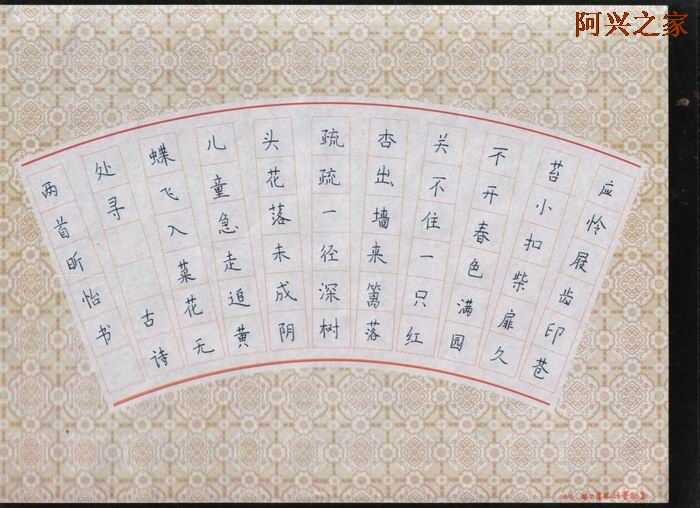 阿兴之家
应怜屐齿印苍
苔小扣柴扉久
不开春色满园
关不住一只红
杏出墙来篱落
疏疏一径深树
头花落未成阴
儿童急走追黄
蝶飞入菜花无
处寻 古诗
两首昕怡书